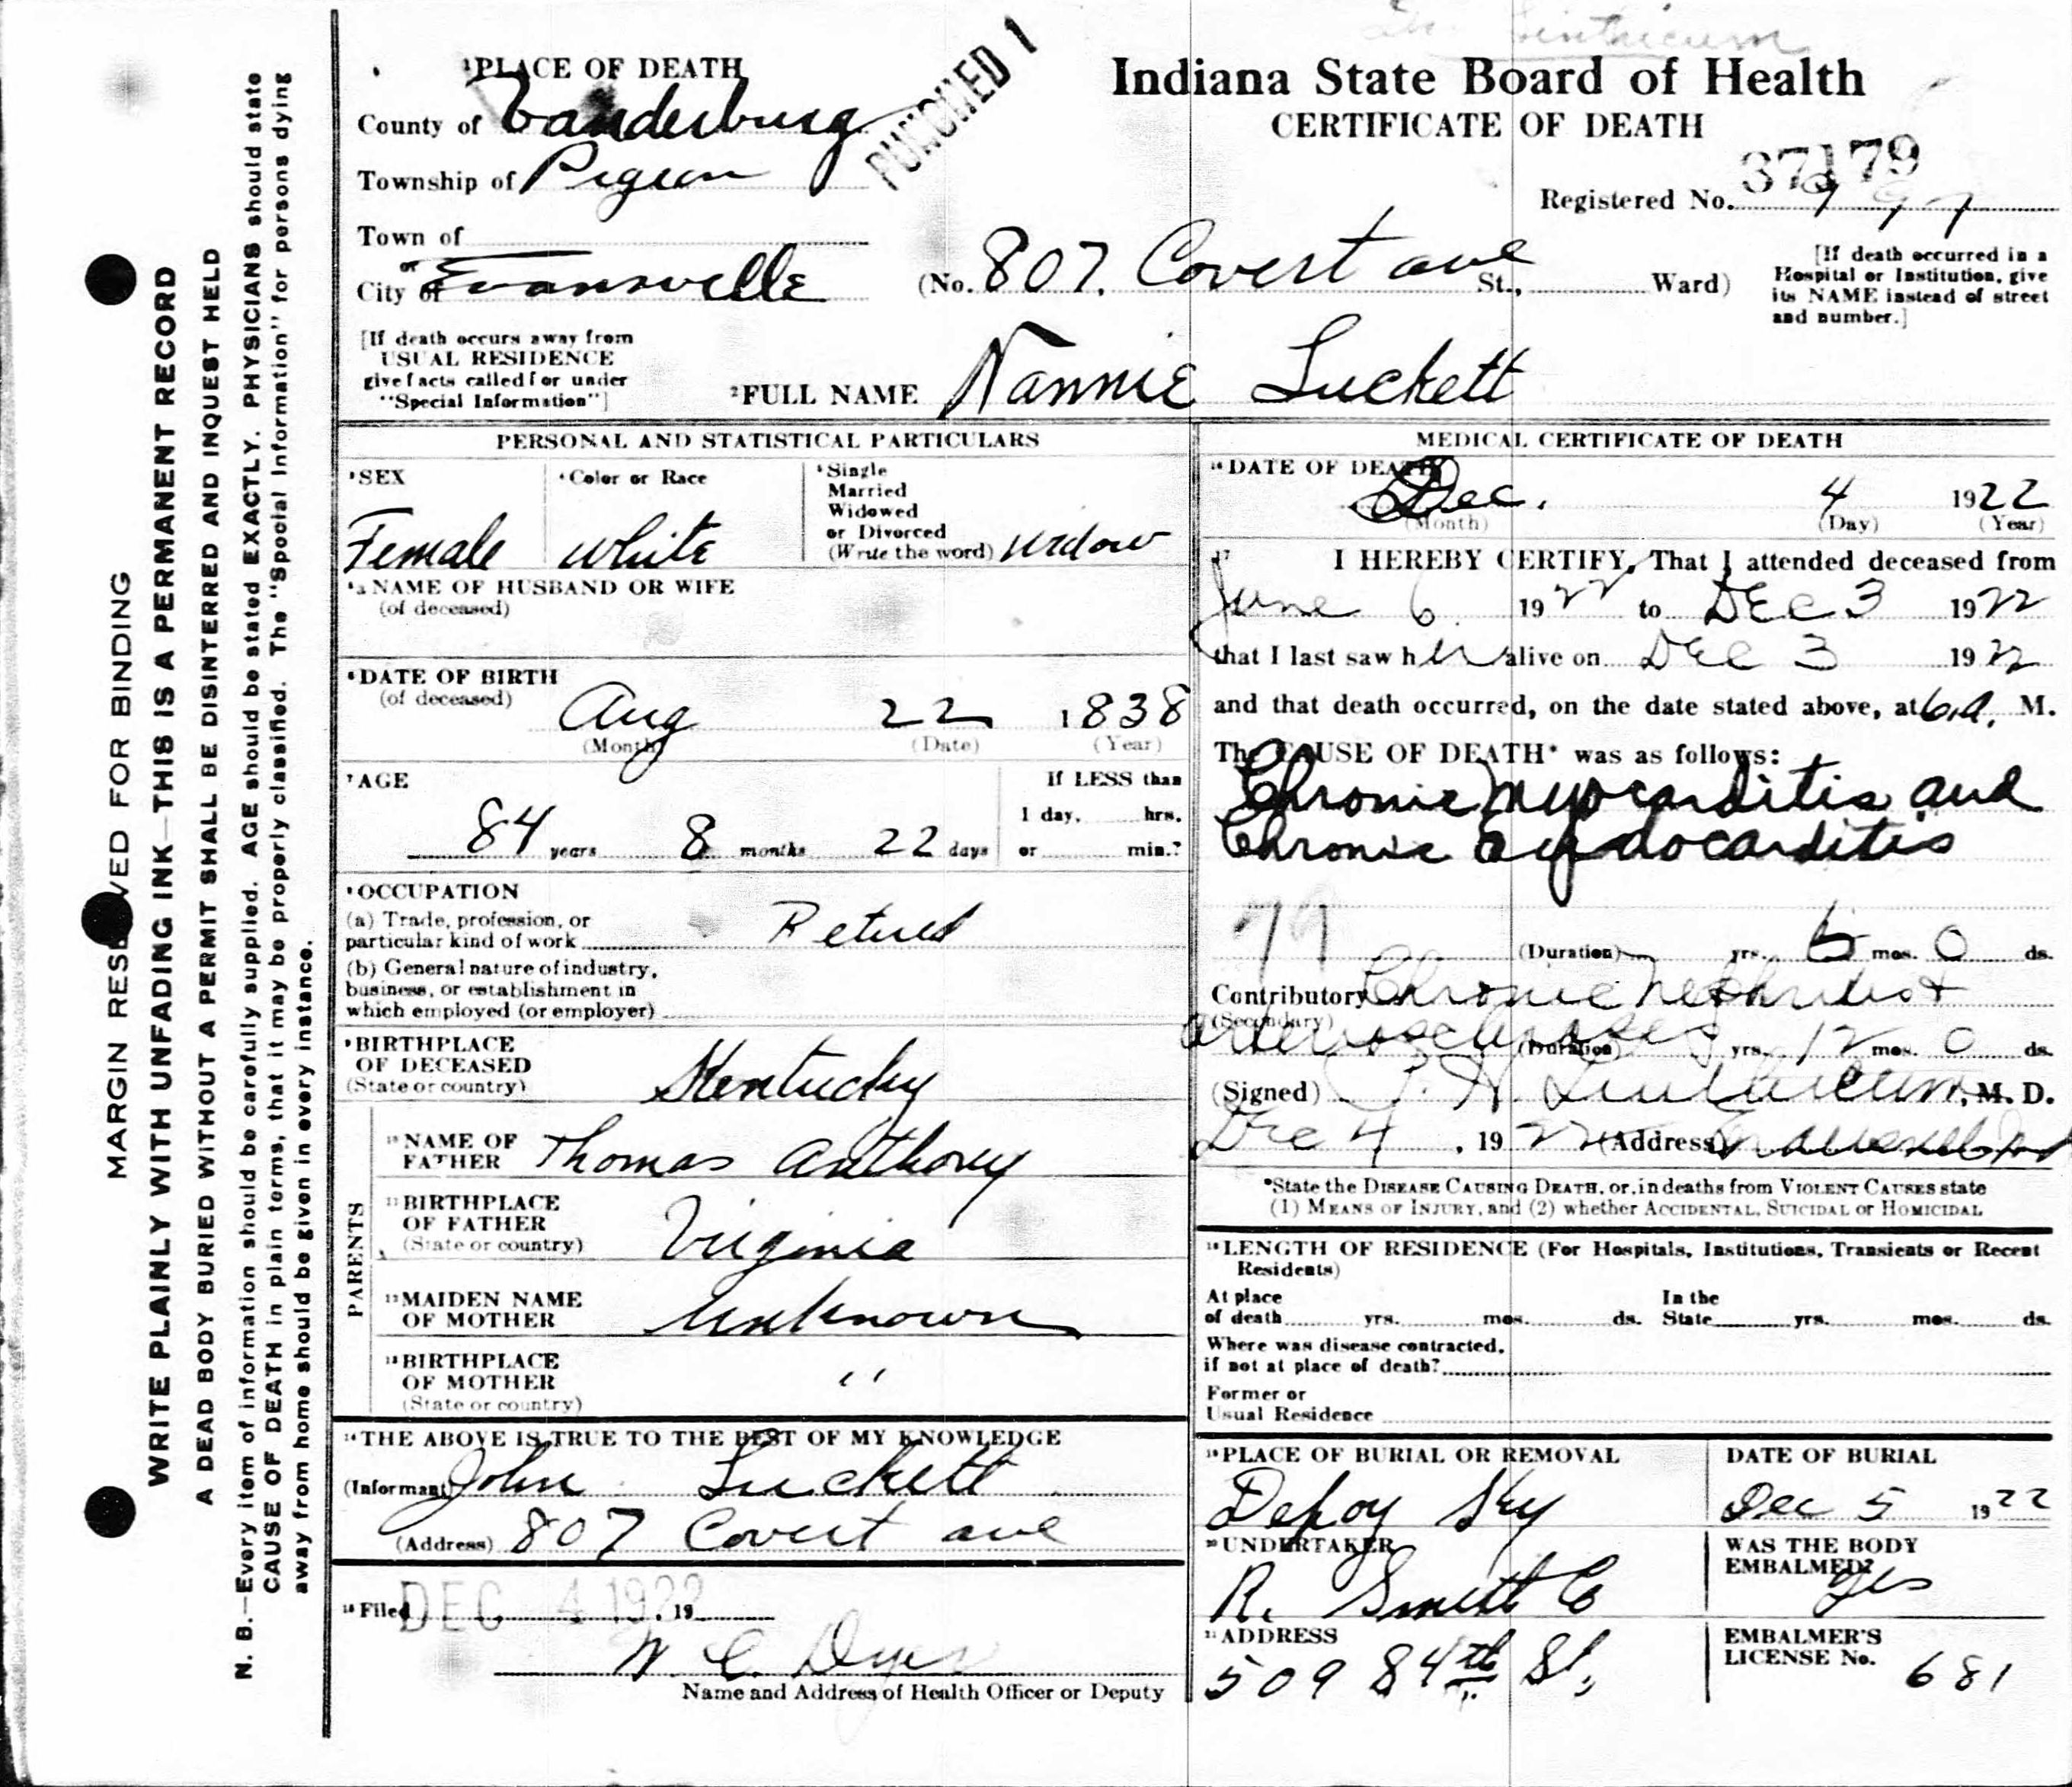 Linthicum
Indiana State Board of Health
CERTIFICATE OF DEATH
37179
Registered No. 997
PUNCHED 1
1 PLACE OF DEATH
County of Vanderburg
Township of Pigeon
Town of
or
City of Evansville
(No. 807. Covert ave St., Ward)
[If death occurred in a
Hospital or Institution, give
its NAME instead of street
and number.]
[If death occurs away from
USUAL RESIDENCE
give facts called for under
"Special Information"]
2 FULL NAME Nannie Luckett
PERSONAL AND STATISTICAL PARTICULARS
3 SEX
Female
4 Color or Race
White
5 Single
Married
Widowed
or Divorced
(Write the word) Widow
5a NAME OF HUSBAND OR WIFE
(of deceased)
6 DATE OF BIRTH
(of deceased)
Aug 22 1838
(Month) (Date) (Year)
7 AGE
84 years 8 months 22 days
If LESS than
1 day, hrs.
or min.?
8 OCCUPATION
(a) Trade, profession, or
particular kind of work Retired
(b) General nature of industry,
business, or establishment in
which employed (or employer)
9 BIRTHPLACE
OF DECEASED
(State or country) Kentucky
PARENTS
10 NAME OF
FATHER Thomas Anthony
11 BIRTHPLACE
OF FATHER
(State or country) Virginia
12 MAIDEN NAME
OF MOTHER Unknown
13 BIRTHPLACE
OF MOTHER "
(State or country)
14 THE ABOVE IS TRUE TO THE BEST OF MY KNOWLEDGE
(Informant) John Luckett
(Address) 807 Covert ave
15 Filed DEC 4 1922, 19
W. C. Dyer
Name and Address of Health Officer or Deputy
MEDICAL CERTIFICATE OF DEATH
16 DATE OF DEATH
Dec. 4 1922
(Month) (Day) (Year)
17 I HEREBY CERTIFY, That I attended deceased from
June 6 1922 to Dec 3 1922
that I last saw her alive on Dec 3 1922
and that death occurred, on the date stated above, at 6 a. M.
The CAUSE OF DEATH* was as follows:
Chronic Myocarditis and
Chronic Endocarditis
79
(Duration) yrs. 6 mos. 0 ds.
Contributory Chronic Nephritis +
(Secondary)
arteriosclerosis (Duration) yrs. 12 mos. 0 ds.
(Signed) P. H. Linthicum, M. D.
Dec 4, 1922 (Address) Evansville Ind
*State the DISEASE CAUSING DEATH, or, in deaths from VIOLENT CAUSES state
(1) MEANS OF INJURY, and (2) whether ACCIDENTAL, SUICIDAL or HOMICIDAL
18 LENGTH OF RESIDENCE (For Hospitals, Institutions, Transients or Recent
Residents)
At place
of death yrs. mos. ds. In the State yrs. mos. ds.
Where was disease contracted,
if not at place of death?
Former or
Usual Residence
19 PLACE OF BURIAL OR REMOVAL
Depoy Ky
DATE OF BURIAL
Dec 5 1922
20 UNDERTAKER
R. Smith Co
WAS THE BODY
EMBALMED?
Yes
21 ADDRESS
509 8 4th St,
EMBALMER'S
LICENSE No. 681
MARGIN RESERVED FOR BINDING
WRITE PLAINLY WITH UNFADING INK—THIS IS A PERMANENT RECORD
A DEAD BODY BURIED WITHOUT A PERMIT SHALL BE DISINTERRED AND INQUEST HELD
N. B.—Every item of information should be carefully supplied. AGE should be stated EXACTLY. PHYSICIANS should state
CAUSE OF DEATH in plain terms, that it may be properly classified. The "Special Information" for persons dying
away from home should be given in every instance.